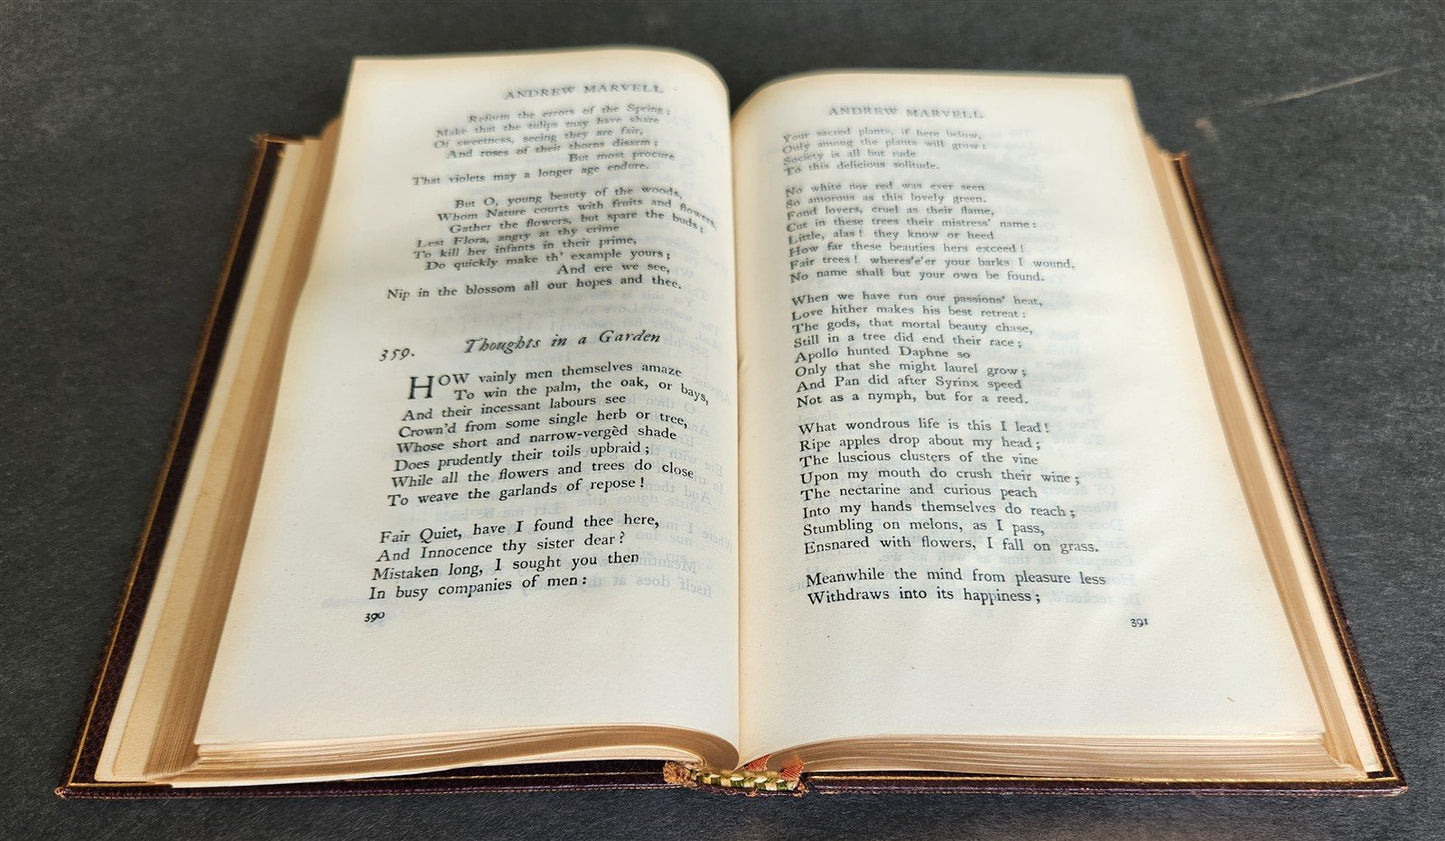 ANDREW MARVELL
Reform the errors of the Spring;
Make that the tulips may have share
Of sweetness, seeing they are fair,
And roses of their thorns disarm;
But most procure
That violets may a longer age endure.
But O, young beauty of the woods,
Whom Nature courts with fruits and flowers,
Gather the flowers, but spare the buds;
Lest Flora, angry at thy crime
To kill her infants in their prime,
Do quickly make th' example yours;
And ere we see,
Nip in the blossom all our hopes and thee.
359. Thoughts in a Garden
HOW vainly men themselves amaze
To win the palm, the oak, or bays,
And their incessant labours see
Crown'd from some single herb or tree,
Whose short and narrow-vergèd shade
Does prudently their toils upbraid;
While all the flowers and trees do close
To weave the garlands of repose!
Fair Quiet, have I found thee here,
And Innocence thy sister dear?
Mistaken long, I sought you then
In busy companies of men:
390
ANDREW MARVELL
Your sacred plants, if here below,
Only among the plants will grow:
Society is all but rude
To this delicious solitude.
No white nor red was ever seen
So amorous as this lovely green.
Fond lovers, cruel as their flame,
Cut in these trees their mistress' name:
Little, alas! they know or heed
How far these beauties hers exceed!
Fair trees! wheres'e'er your barks I wound,
No name shall but your own be found.
When we have run our passions' heat,
Love hither makes his best retreat:
The gods, that mortal beauty chase,
Still in a tree did end their race;
Apollo hunted Daphne so
Only that she might laurel grow;
And Pan did after Syrinx speed
Not as a nymph, but for a reed.
What wondrous life is this I lead!
Ripe apples drop about my head;
The luscious clusters of the vine
Upon my mouth do crush their wine;
The nectarine and curious peach
Into my hands themselves do reach;
Stumbling on melons, as I pass,
Ensnared with flowers, I fall on grass.
Meanwhile the mind from pleasure less
Withdraws into its happiness;
391